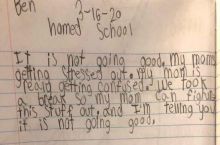 Ben
3-16-20
homed School
It is not going good. my moms
getting stressed out. My mom is
really getting confused. We took
a break so my mom can figure
this stuff out. and I'm telling you
it is not going good.